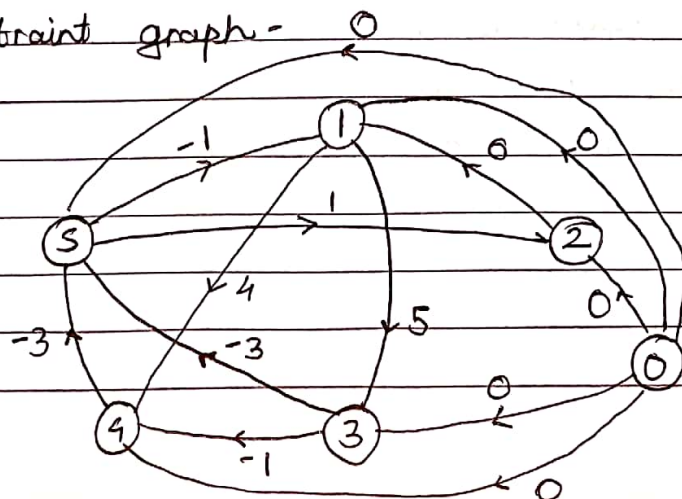 traint graph-
0
1
-1
0
0
1
5
2
4
0
5
-3
-3
0
0
4
3
-1
0